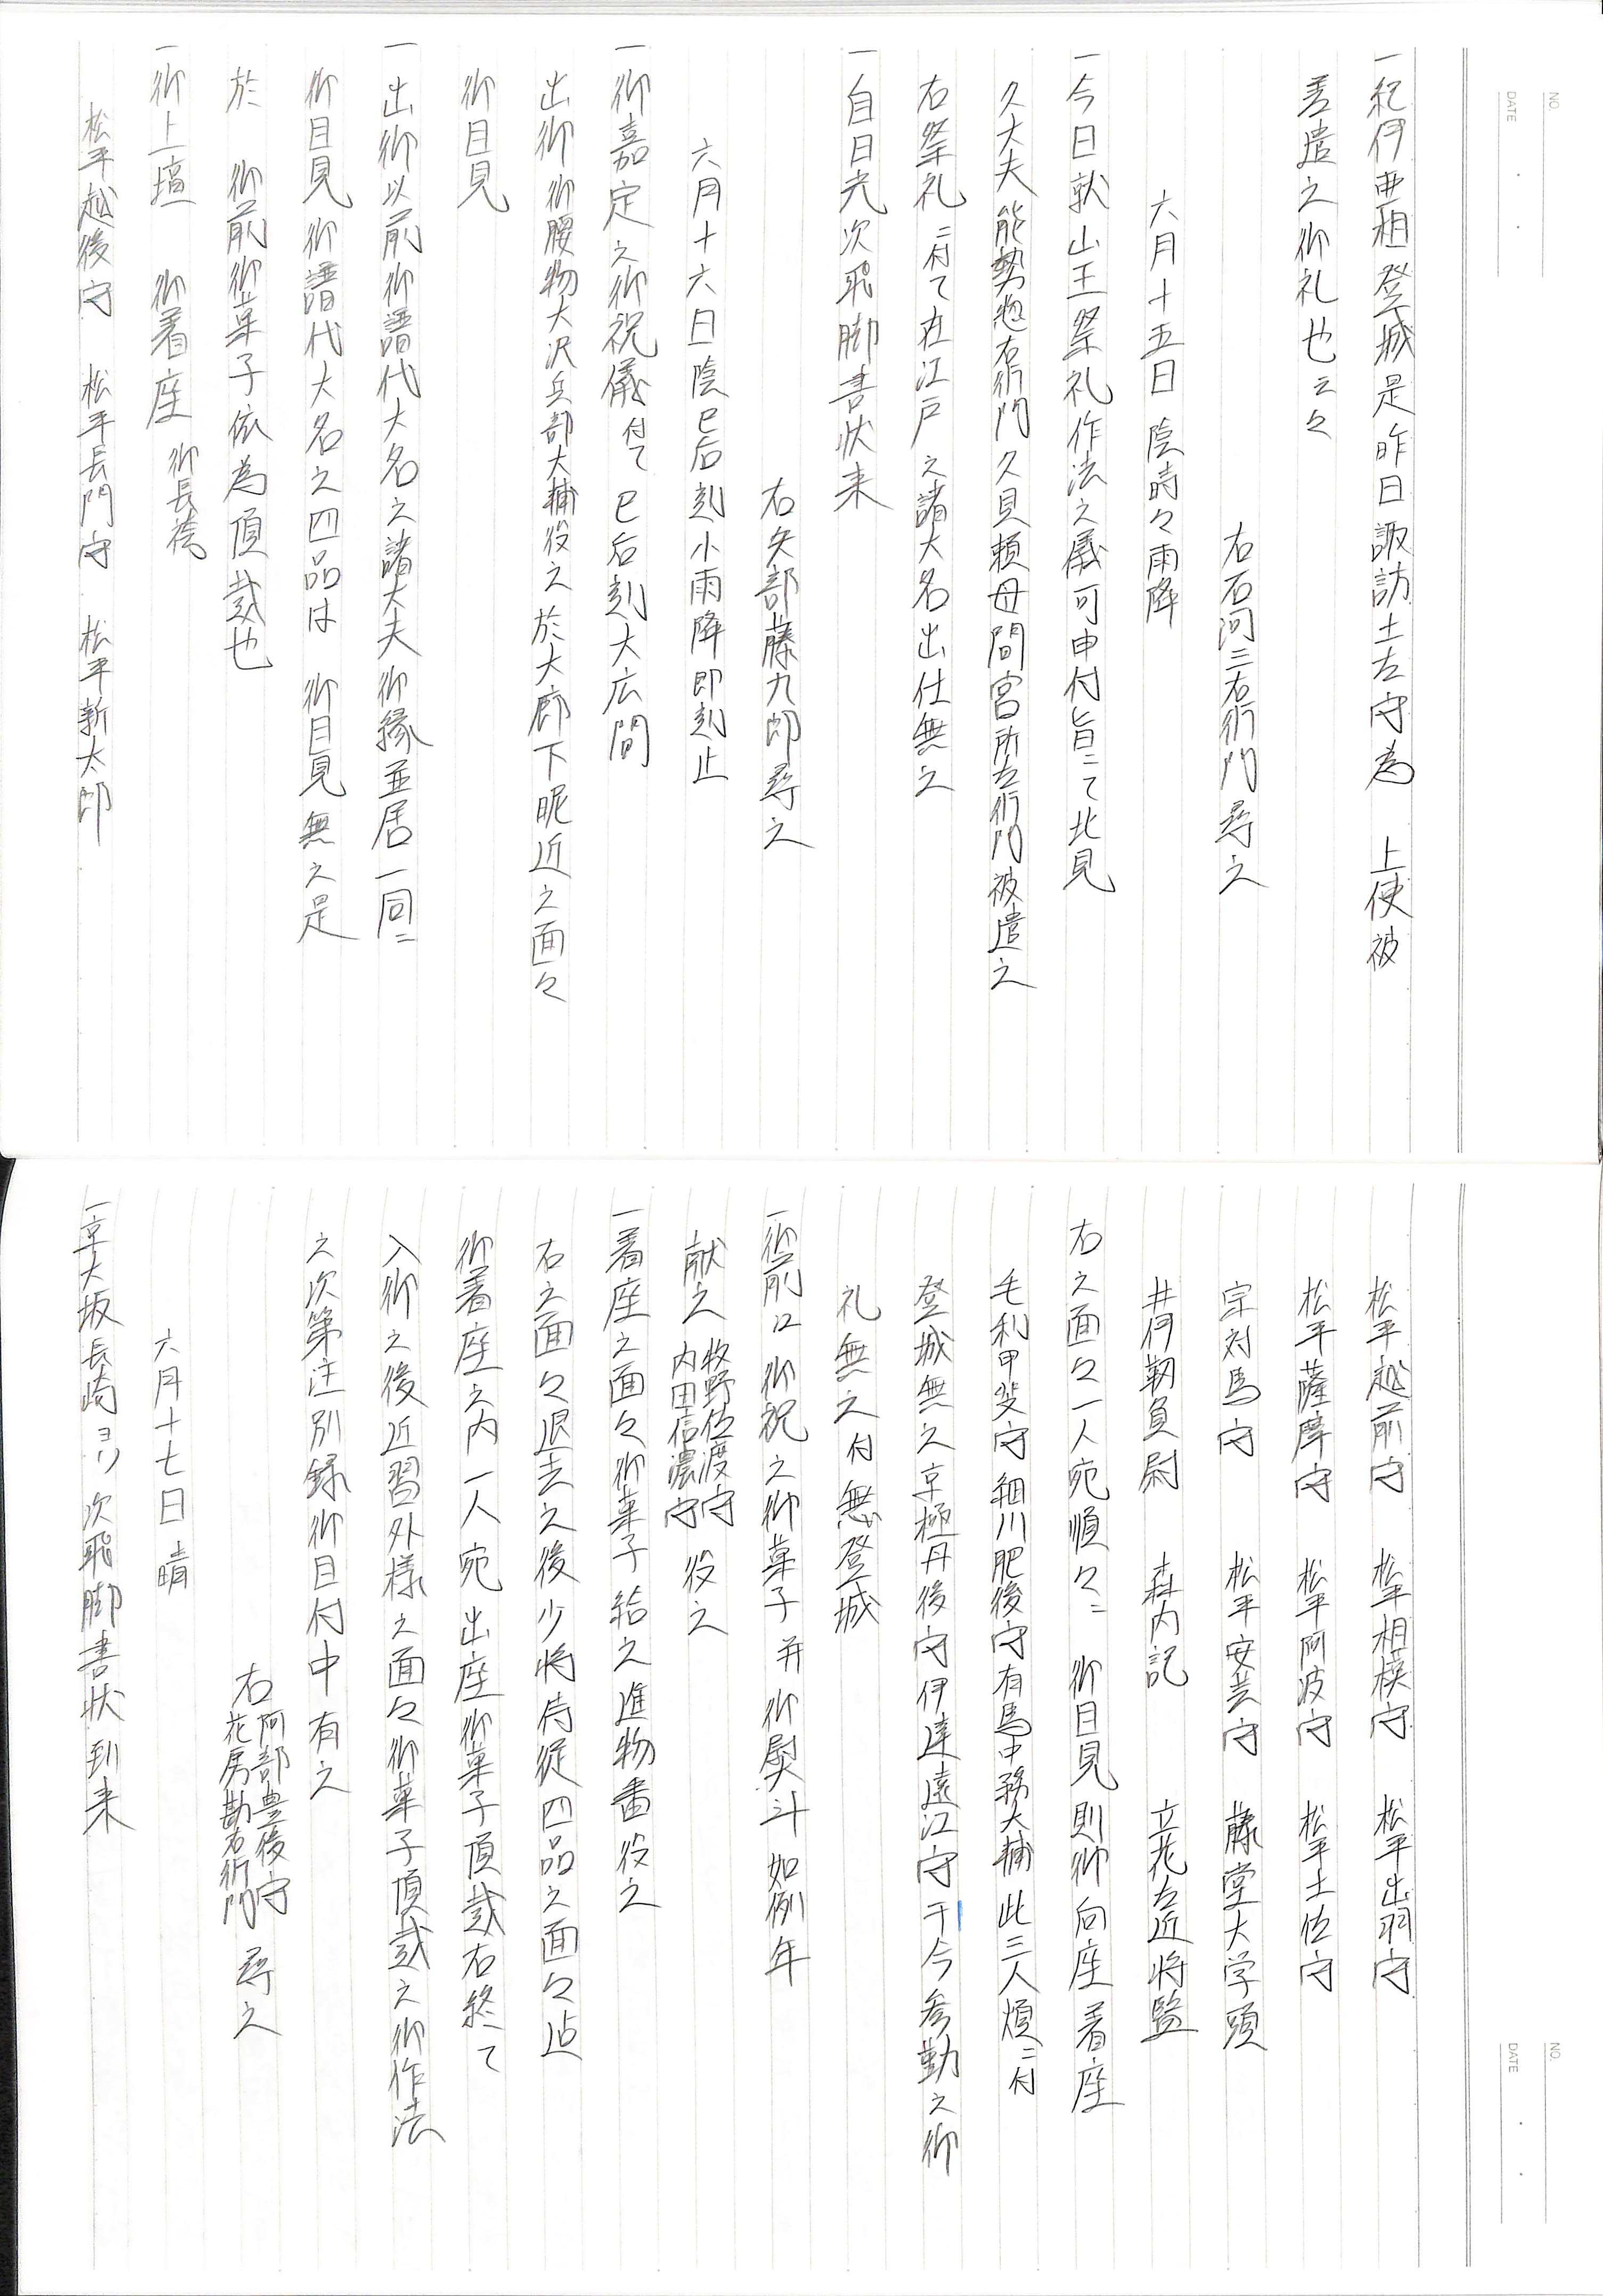 一紀伊亜相登城是昨日諏訪土左守為　上使被
差遣之御礼也云々
右石河三右衛門尋之
六月十五日 陰時々雨降
一今日就山王祭礼作法之儀可申付旨ニて北見
久大夫能勢惣右衛門久貝頼母間宮所左衛門被遣之
右祭礼ニ付て在江戸之諸大名出仕無之
一自日光次飛脚書状来
右矢部藤九郎尋之
六月十六日陰巳后刻小雨降即刻止
一御嘉定之御祝儀付て巳后刻大広間
出御御腰物大沢兵部大輔役之於大廊下昵近之面々
御目見
一出御以前御譜代大名之諸大夫御縁並居一同ニ
御目見御譜代大名之四品は　御目見無之是
於　御前御菓子依為頂戴也
一御上壇　御着座 御長袴
松平越後守　松平長門守　松平新太郎
松平越前守　松平相模守　松平出羽守
松平薩摩守　松平阿波守　松平土佐守
宗対馬守　松平安芸守　藤堂大学頭
井伊靭負尉　森内記　立花左近将監
右之面々一人宛順々ニ　御目見則御向座着座
毛利甲斐守細川肥後守有馬中務大輔此三人煩ニ付
登城無之京極丹後守伊達遠江守于今参勤之御
礼無之付無登城
一御前江御祝之御菓子并御熨斗如例年
献之 牧野佐渡守 内田信濃守 役之
一着座之面々御菓子給之進物番役之
右之面々退去之後少将侍従四品之面々迠
御着座之内一人宛出座御菓子頂戴右終て
入御之後近習外様之面々御菓子頂戴之御作法
之次第注別録御目付中有之
右 阿部豊後守 花房勘右衛門 尋之
六月十七日 晴
一京大坂長崎ヨリ次飛脚書状到来
NO.
DATE
NO.
DATE